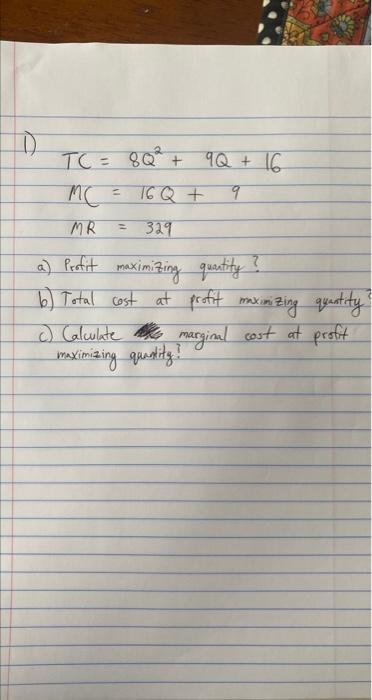 1)
TC = 8Q² + 9Q + 16
MC = 16Q + 9
MR = 329
a) Profit maximizing quantity?
b) Total cost at profit maximizing quantity?
c) Calculate marginal cost at profit
maximizing quantity?